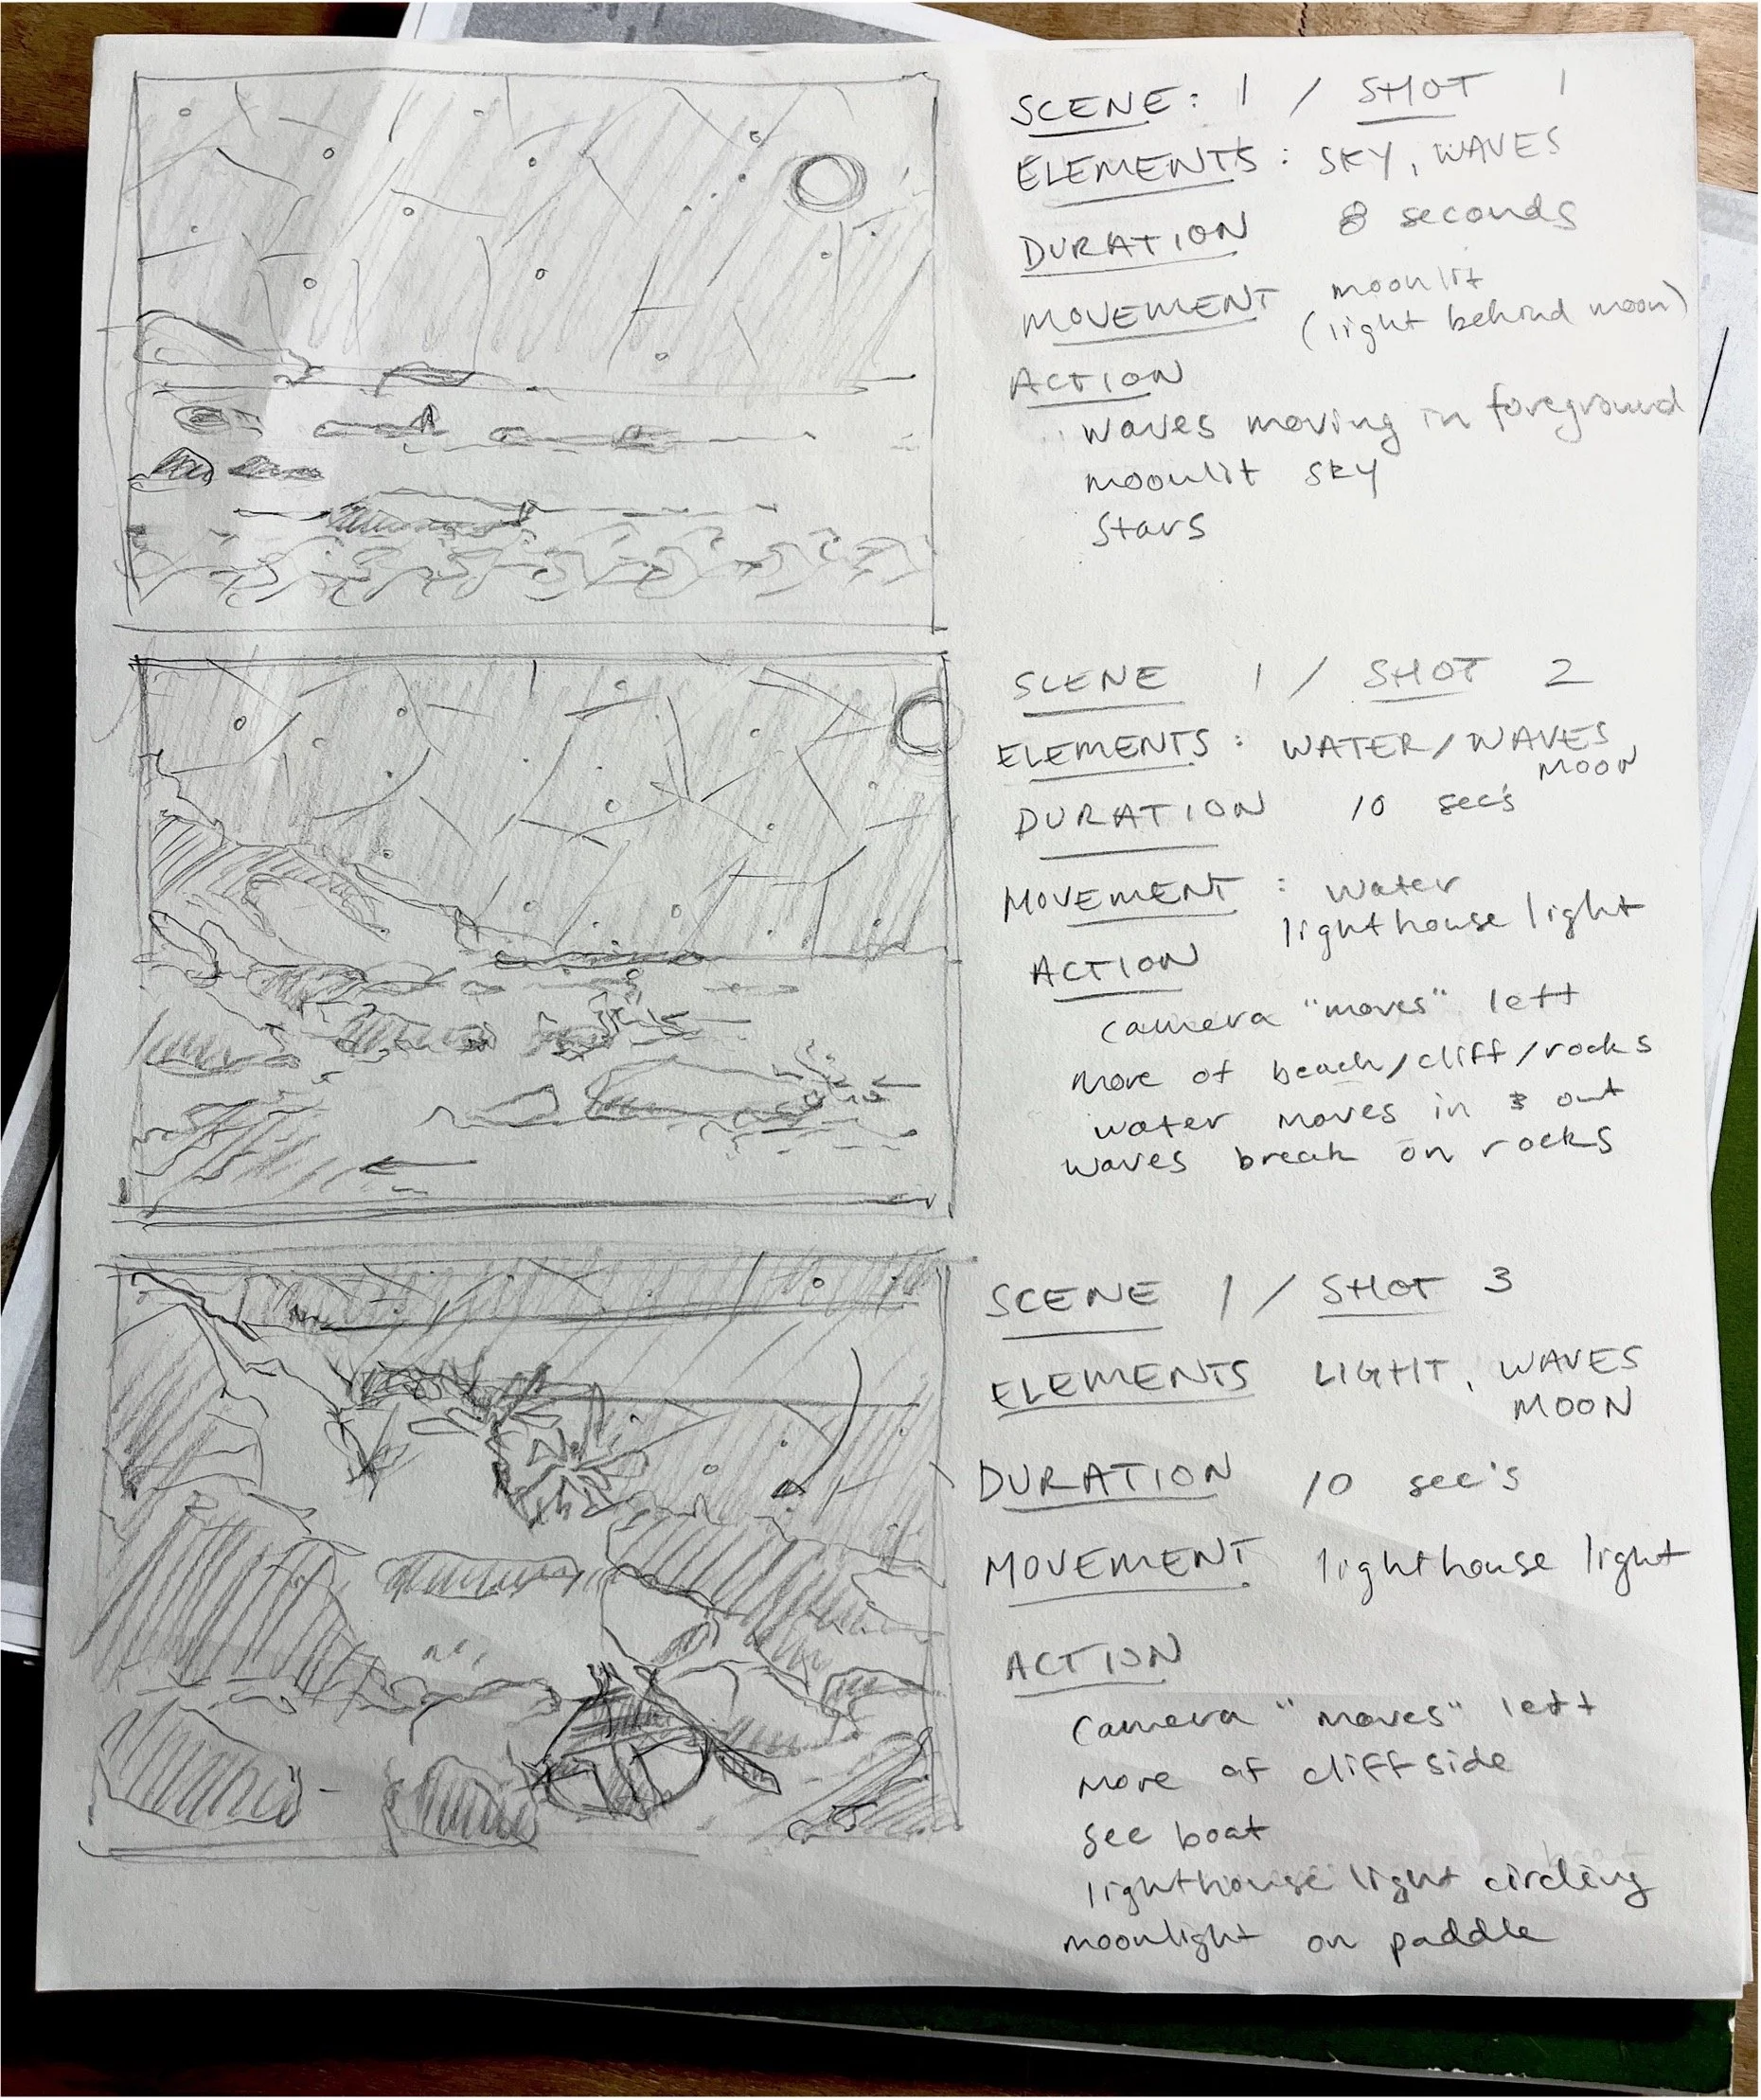 SCENE: 1 / SHOT 1
ELEMENTS: SKY, WAVES
DURATION 8 seconds
MOVEMENT moonlit
(light behind moon)
ACTION
waves moving in foreground
moonlit sky
stars
SCENE 1 / SHOT 2
ELEMENTS: WATER/WAVES,
MOON
DURATION 10 sec's
MOVEMENT: water
lighthouse light
ACTION
camera "moves" left
more of beach/cliff/rocks
water moves in & out
waves break on rocks
SCENE 1 / SHOT 3
ELEMENTS LIGHT, WAVES
MOON
DURATION 10 sec's
MOVEMENT lighthouse light
ACTION
camera "moves" left
more of cliffside
see boat
lighthouse light circling
moonlight on paddle